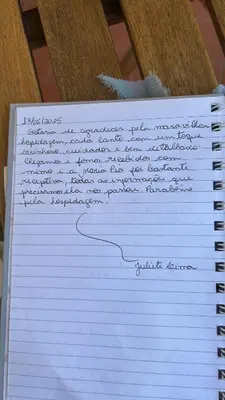 13/06/2025
Gostaria de agradecer pela maravilhosa
hospedagem, cada canto com um toque
carinhoso, cuidador e bem detalhado
chegamos e fomos recebidos com
mimo e a Maria Pia foi bastante
receptiva, todas as informações que
precisamos ela nos passou. Parabéns
pela hospedagem.
Juliete Lima